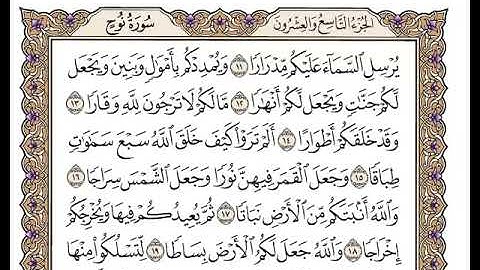 الجزء التاسع والعشرون سورة نوح
يُرْسِلِ ٱلسَّمَآءَ عَلَيْكُم مِّدْرَارًا ۝١١ وَيُمْدِدْكُم بِأَمْوَٰلٍ وَبَنِينَ وَيَجْعَل
لَّكُمْ جَنَّٰتٍ وَيَجْعَل لَّكُمْ أَنْهَٰرًا ۝١٢ مَّا لَكُمْ لَا تَرْجُونَ لِلَّهِ وَقَارًا ۝١٣
وَقَدْ خَلَقَكُمْ أَطْوَارًا ۝١٤ أَلَمْ تَرَوْا۟ كَيْفَ خَلَقَ ٱللَّهُ سَبْعَ سَمَٰوَٰتٍ
طِبَاقًا ۝١٥ وَجَعَلَ ٱلْقَمَرَ فِيهِنَّ نُورًا وَجَعَلَ ٱلشَّمْسَ سِرَاجًا ۝١٦
وَٱللَّهُ أَنۢبَتَكُم مِّنَ ٱلْأَرْضِ نَبَاتًا ۝١٧ ثُمَّ يُعِيدُكُمْ فِيهَا وَيُخْرِجُكُمْ
إِخْرَاجًا ۝١٨ وَٱللَّهُ جَعَلَ لَكُمُ ٱلْأَرْضَ بِسَاطًا ۝١٩ لِّتَسْلُكُوا۟ مِنْهَا